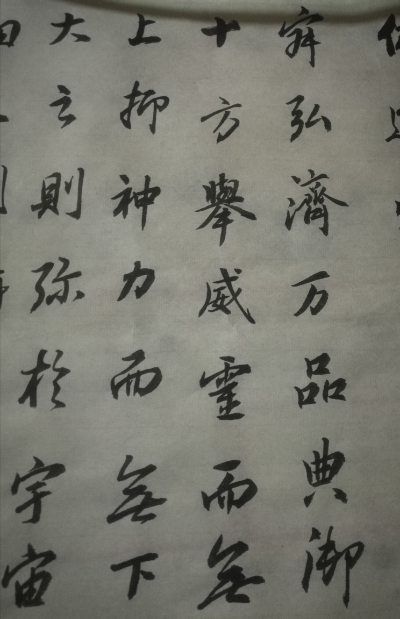 寂弘濟万品典御
十方舉威靈而無
上抑神力而無下
大之則弥於宇宙